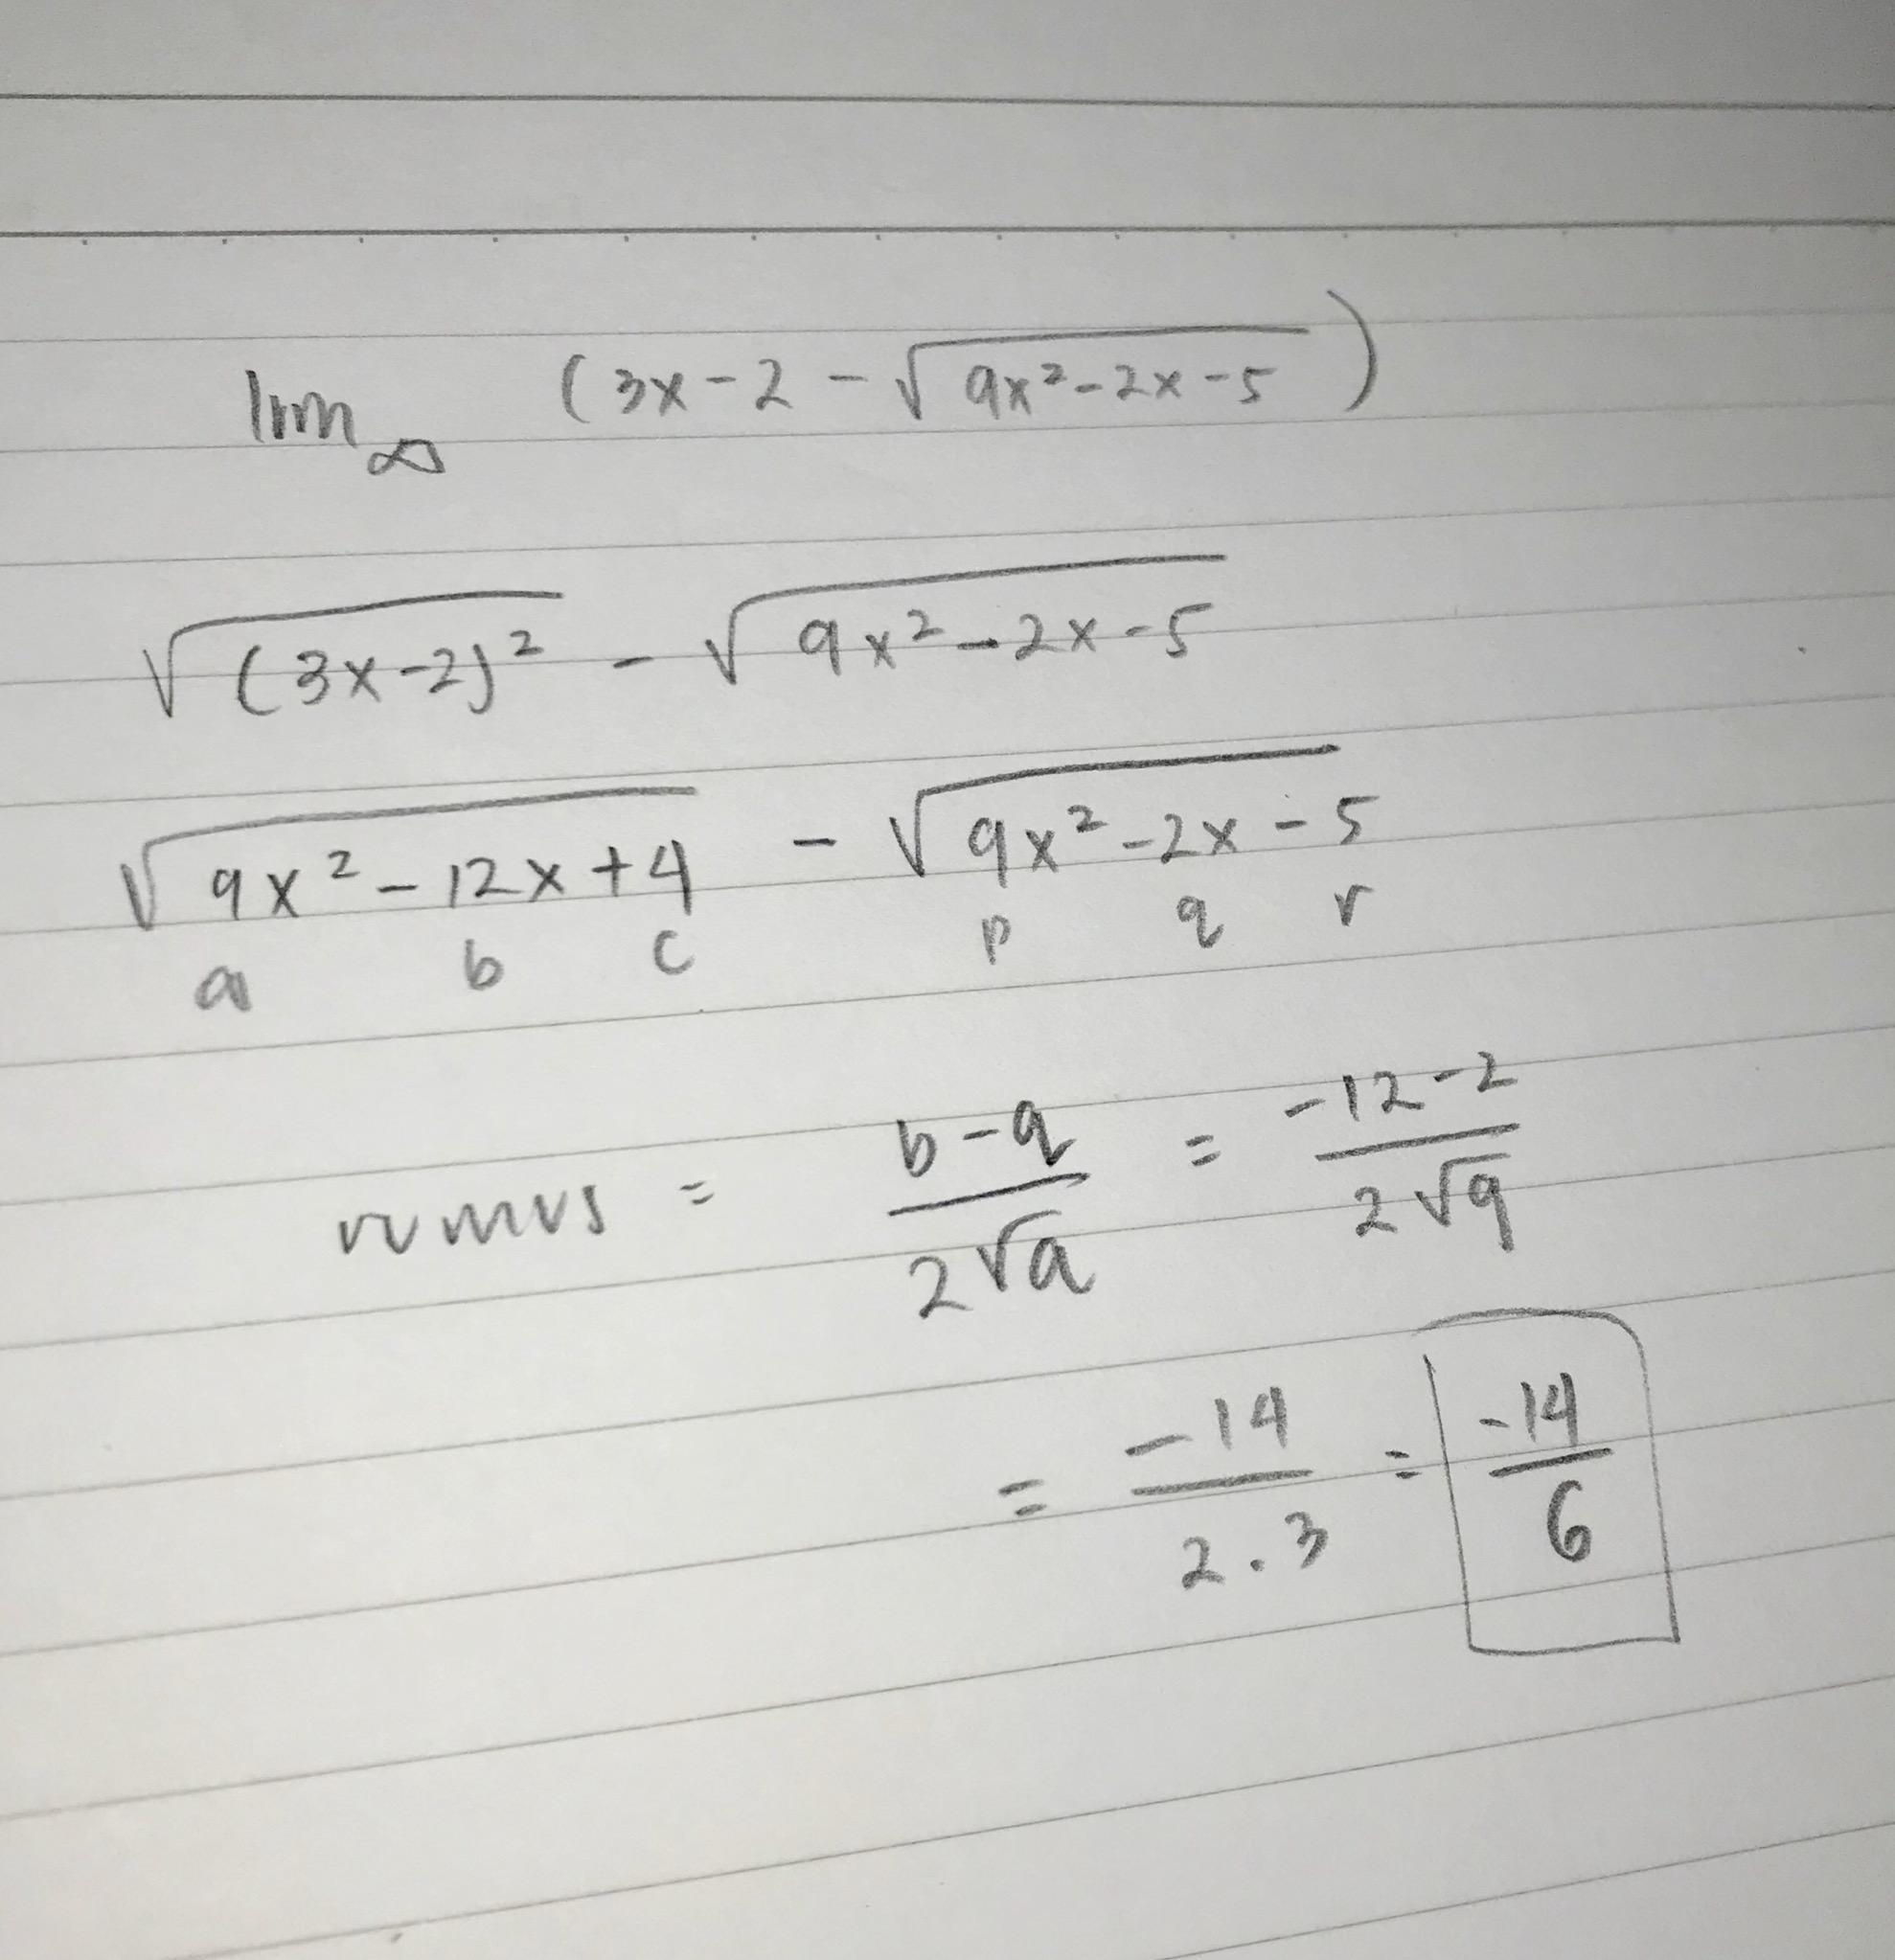 lim ∞ (3x - 2 - √(9x² - 2x - 5))
√((3x - 2)²) - √(9x² - 2x - 5)
√(9x² - 12x + 4) - √(9x² - 2x - 5)
a b c p q r
rumus = (b - q)/(2√a) = (-12 - 2)/(2√9)
= -14/(2 . 3) = -14/6